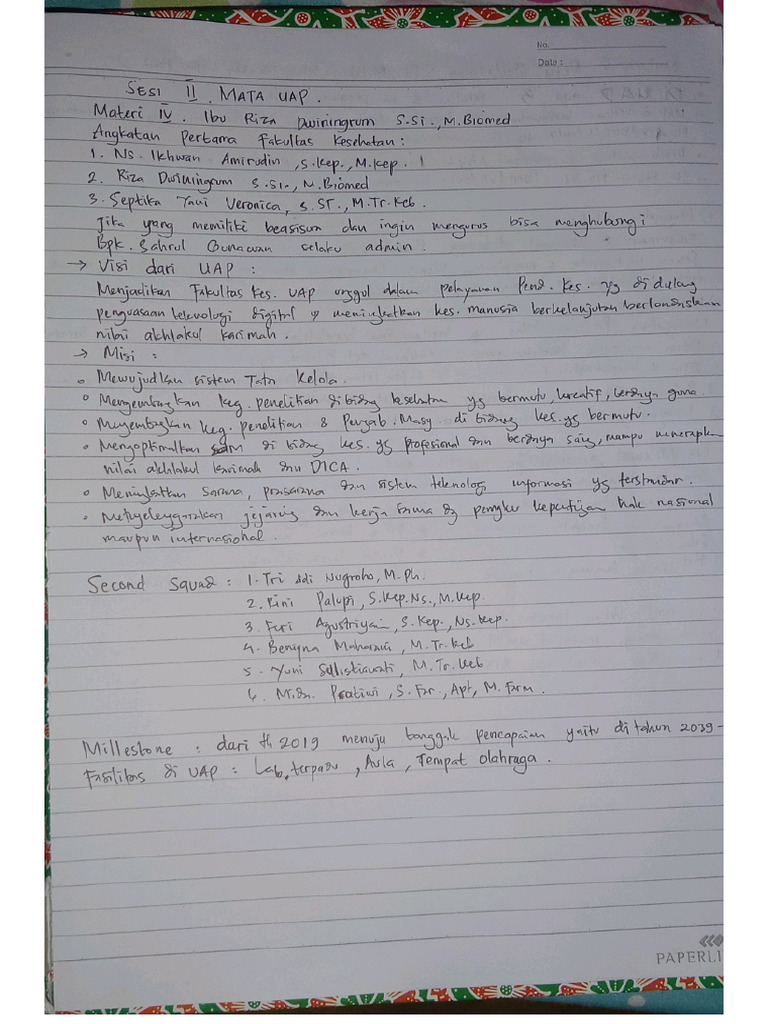 No.
Date :
SESI II. MATA UAP.
Materi IV. Ibu Riza Dwiningrum S.Si., M.Biomed
Angkatan Pertama Fakultas Kesehatan :
1. Ns. Ikhwan Amirudin, S.Kep., M.Kep.
2. Riza Dwiningrum S.Si., M.Biomed
3. Septika Yani Veronica, S.ST., M.Tr.Keb.
Jika yang memiliki beasiswa dan ingin mengurus bisa menghubungi
Bpk. Sahrul Gunawan selaku admin.
→ Visi dari UAP :
Menjadikan Fakultas Kes. UAP unggul dalam pelayanan Pend. Kes. yg didukung
penguasaan teknologi digital meningkatkan kes. manusia berkelanjutan berlandaskan
nilai akhlakul karimah.
→ Misi :
o Mewujudkan sistem Tata Kelola.
o Mengembangkan keg. penelitian dibidang kesehatan yg bermutu, kreatif, berdaya guna.
o Mengembangkan keg. penelitian & Pengab. Masy. di bidang kes. yg bermutu.
o Mengoptimalkan sdm di bidang kes. yg profesional dan berdaya saing, mampu menerapkan
nilai akhlakul karimah dan DICA.
o Meningkatkan Sarana, prasarana dan sistem teknologi informasi yg terstandar.
o Menyelenggarakan jejaring dan kerja sama dg pengku keputusan baik nasional
maupun internasional.
Second Squad : 1. Tri Adi Nugroho, M.Ph.
2. Rini Palupi, S.Kep.Ns., M.Kep.
3. Feri Agustriyani, S.Kep., Ns. Kep.
4. Benigna Maharani, M.Tr.Keb
5. Yuni Sulistiawati, M.Tr.Keb
6. Pratiwi, S.Far., Apt, M.Farm.
Millestone : dari th 2019 menuju tonggak pencapaian yaitu di tahun 2039-
Fasilitas di UAP : Lab. terpadu, Aula, Tempat olahraga.
PAPERLI